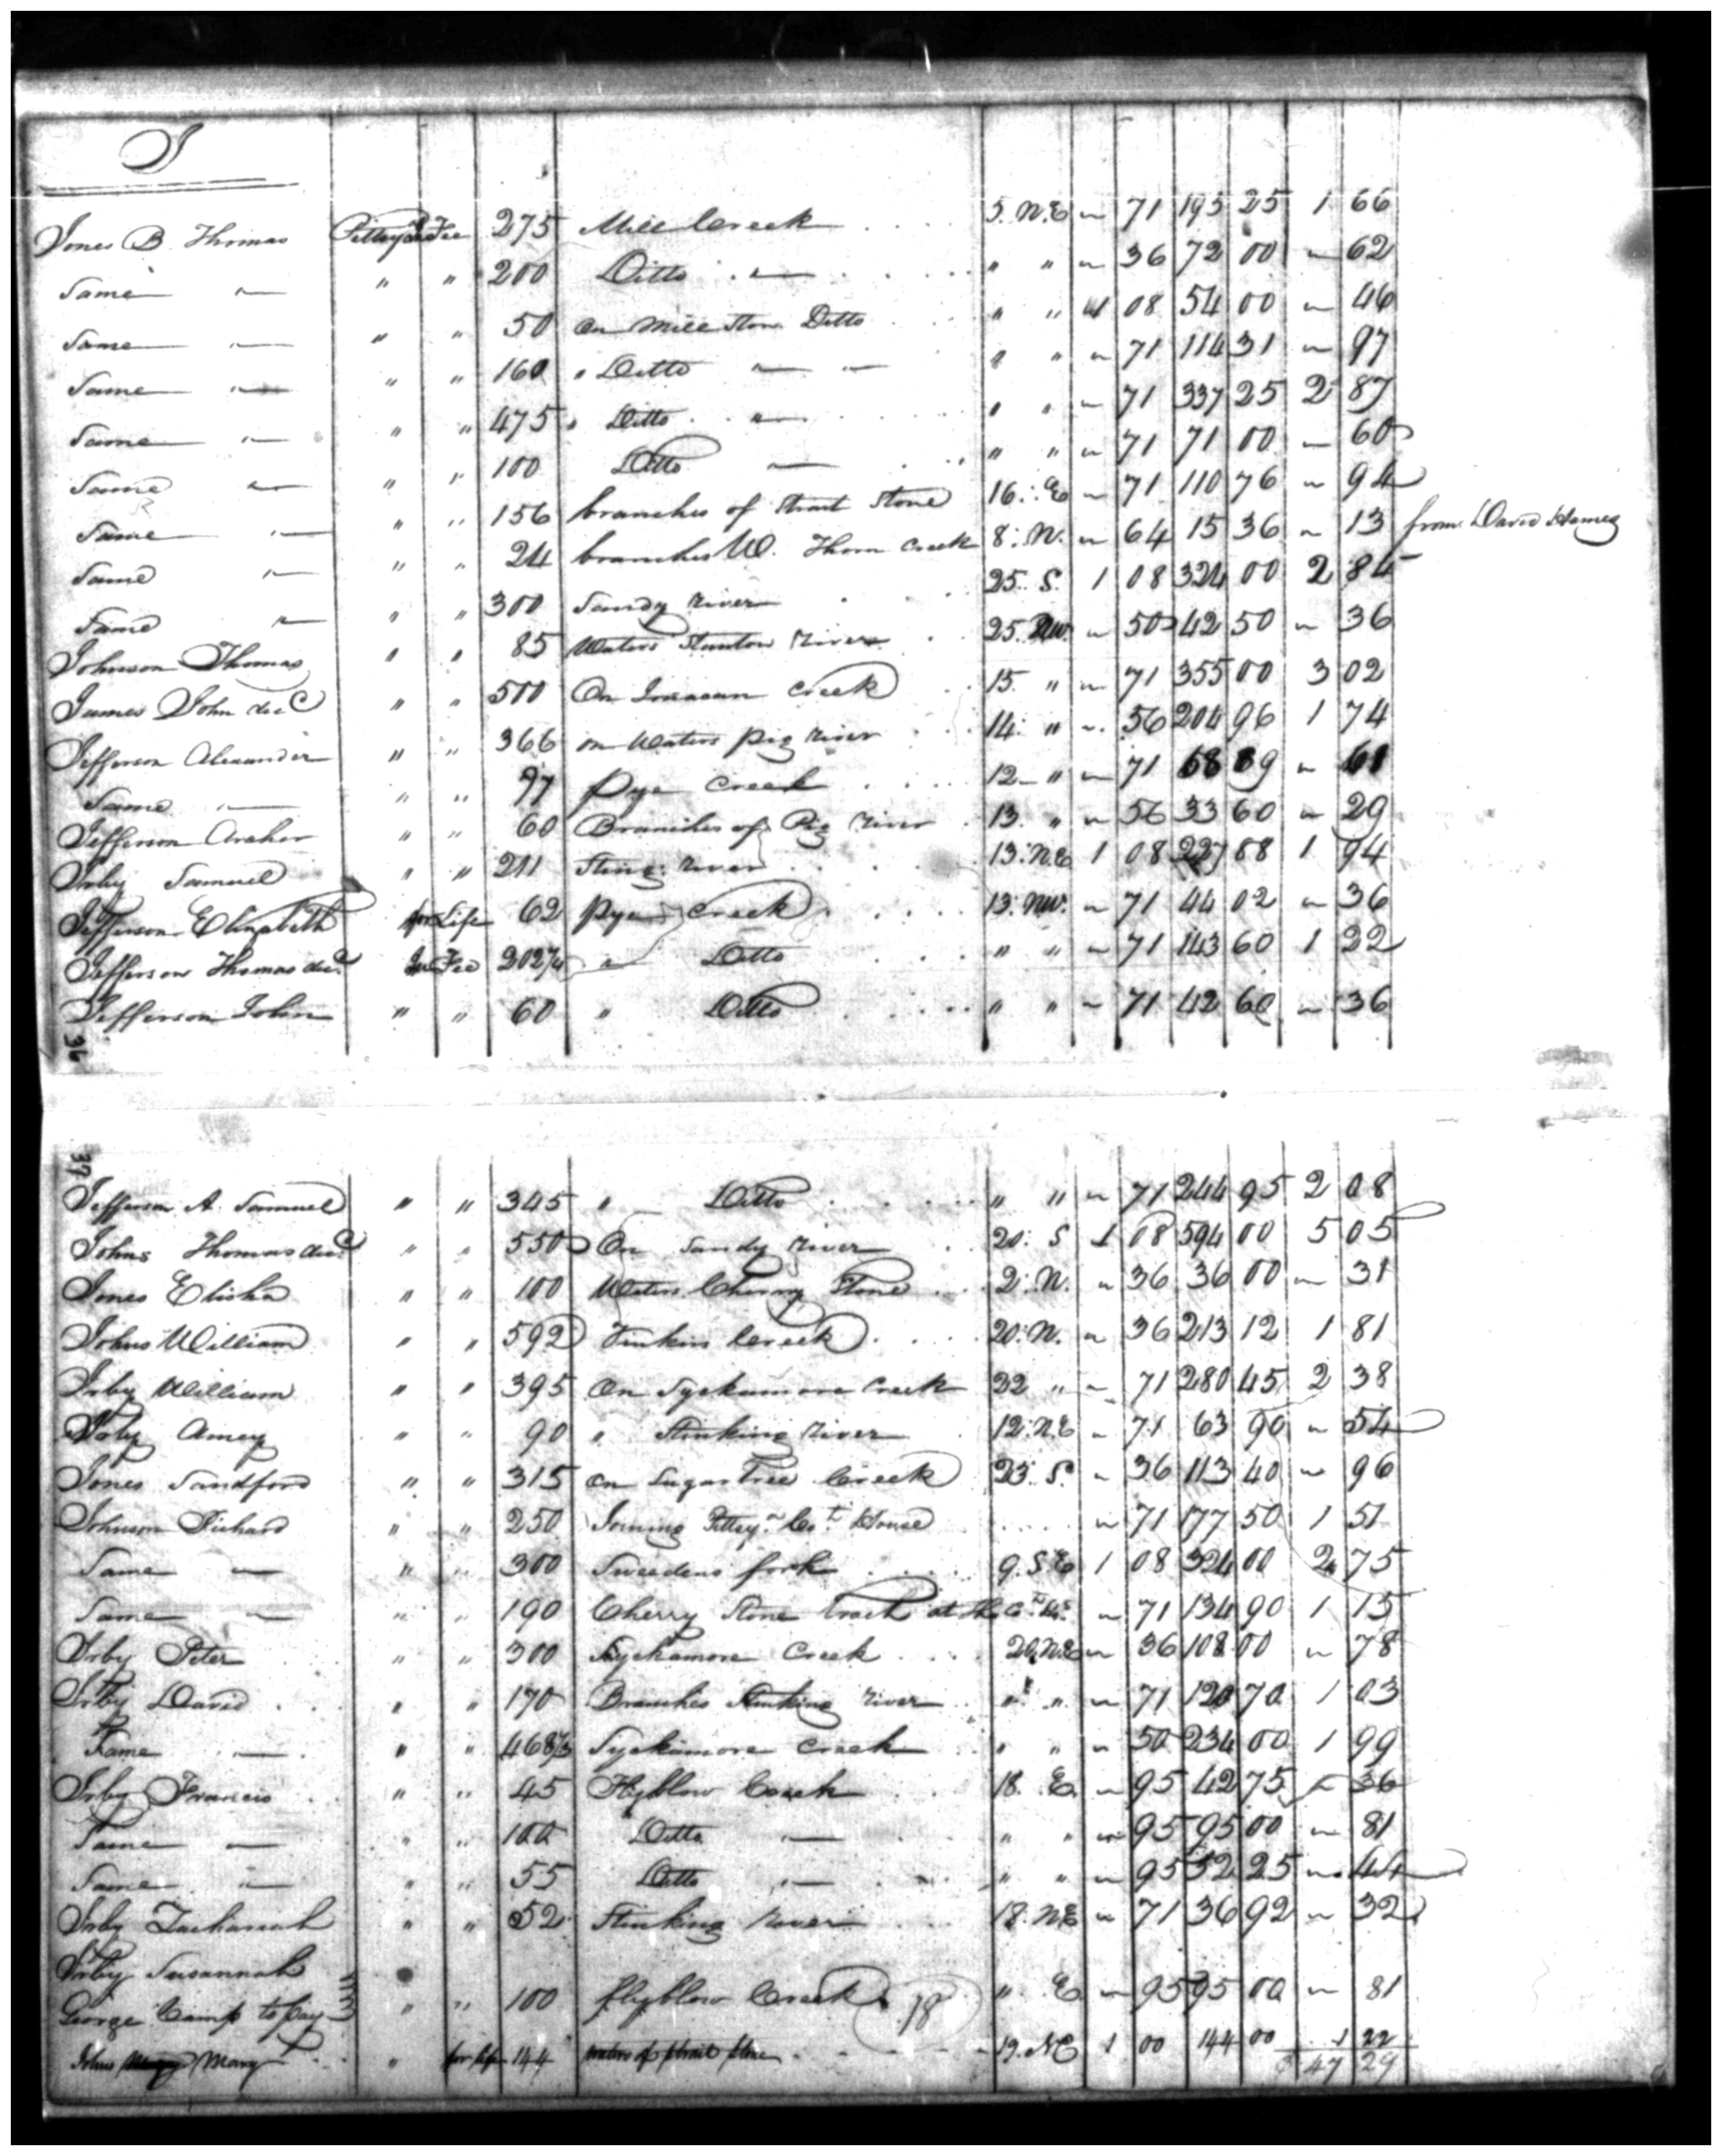 J
Jones B. Thomas Pittsya Fee 275 Mill Creek 5. N.E " 71 195 25 1 66
Same " " " 200 Ditto " " " " 36 72 00 " 62
Same " " " 50 on Mill Ston Ditto " " 1 08 54 00 " 46
Same " " " 160 " Ditto " " " " " 71 114 31 " 97
Same " " " 475 " Ditto " " " " 71 337 25 2 87
Same " " " 100 Ditto " " " " 71 71 00 " 60
Same " " " 156 branches of Strait Stone 16. E " 71 110 76 " 94
Same " " " 24 branches W. Thorn Creek 8. N. " 64 15 36 " 13 from David
Same " " " 300 Sandy River 25. S. 1 08 324 00 2 84
Johnson Thomas " " 85 Waters Stanton River 25. NW. " 50 42 50 " 36
James John decd " " 500 On Creek 15. " " 71 355 00 3 02
Jefferson Alexander " " 366 on Waters Pig River 14. " " 56 204 96 1 74
Same " " " 97 Pye Creek 12 " " 71 68 89 " 61
Jefferson Archer " " 60 Branches of Pig River 13. " " 56 33 60 " 29
Irby Samuel " " 211 Sting. River 13. N.E 1 08 227 88 1 94
Jefferson Elizabeth for Life 62 Pye Creek 13. NW. " 71 44 02 " 36
Jefferson Thomas decd In Fee 202¼ " Ditto " " " 71 143 60 1 22
Jefferson John " " 60 " Ditto " " " 71 42 60 " 36
36
37
Jefferson A. Samuel " " 345 " Ditto " " " 71 244 95 2 08
Johns Thomas decd " " 550 On Sandy River 20. S 1 08 594 00 5 05
Jones Elisha " " 100 Waters Cherry Stone 2. N. " 36 36 00 " 31
Johns William " " 592 Creek 20. N. " 36 213 12 1 81
Irby William " " 395 On Syckamore Creek 22 " " 71 280 45 2 38
Irby Amey " " 90 " Stinking River 12. N.E " 71 63 90 " 54
Jones Sandford " " 315 on Sugartree Creek 23. S. " 36 113 40 " 96
Johnson Richard " " 250 Joining Pittsya Cot House " 71 177 50 1 51
Same " " " 300 Sweedens fork 9. S.E 1 08 324 00 2 75
Same " " " 190 Cherry Stone tract at the Ct. Hs. " 71 134 90 1 15
Irby Peter " " 300 Syckamore Creek 20. N.E " 36 108 00 " 78
Irby David " " 170 Branches Stinking River " " " 71 120 70 1 03
Same " " " 468⅓ Syckamore Creek " " " 50 234 00 1 99
Irby Francis " " 45 Flyblow Creek 18. E. " 95 42 75 " 36
Same " " " 100 Ditto " " " " 95 95 00 " 81
Same " " " 55 Ditto " " " " 95 52 25 " 44
Irby Zachariah " " 52 Stinking River 18. N.E " 71 36 92 " 32
Irby Susannah
George Camp to Pay " " 100 flyblow Creek 18 " E " 95 95 00 " 81
Johns Mary " for life 144 waters of strait stone 19. NE 1 00 144 00 1 22
47 29